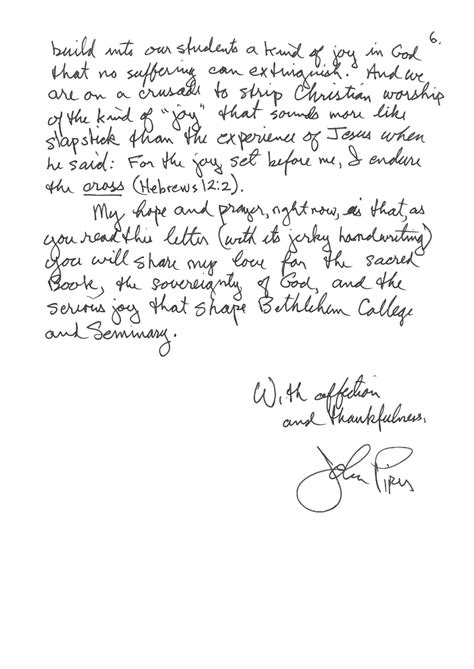 6.
build into our students a kind of joy in God
that no suffering can extinguish. And we
are on a crusade to strip Christian worship
of the kind of "joy" that sounds more like
slapstick than the experience of Jesus when
he said: For the joy set before me, I endure
the cross (Hebrews 12:2).
My hope and prayer, right now, is that, as
you read this letter (with its jerky handwriting)
you will share my love for the sacred
Book, the sovereignty of God, and the
serious joy that shape Bethlehem College
and Seminary.
With affection
and thankfulness,
John Piper